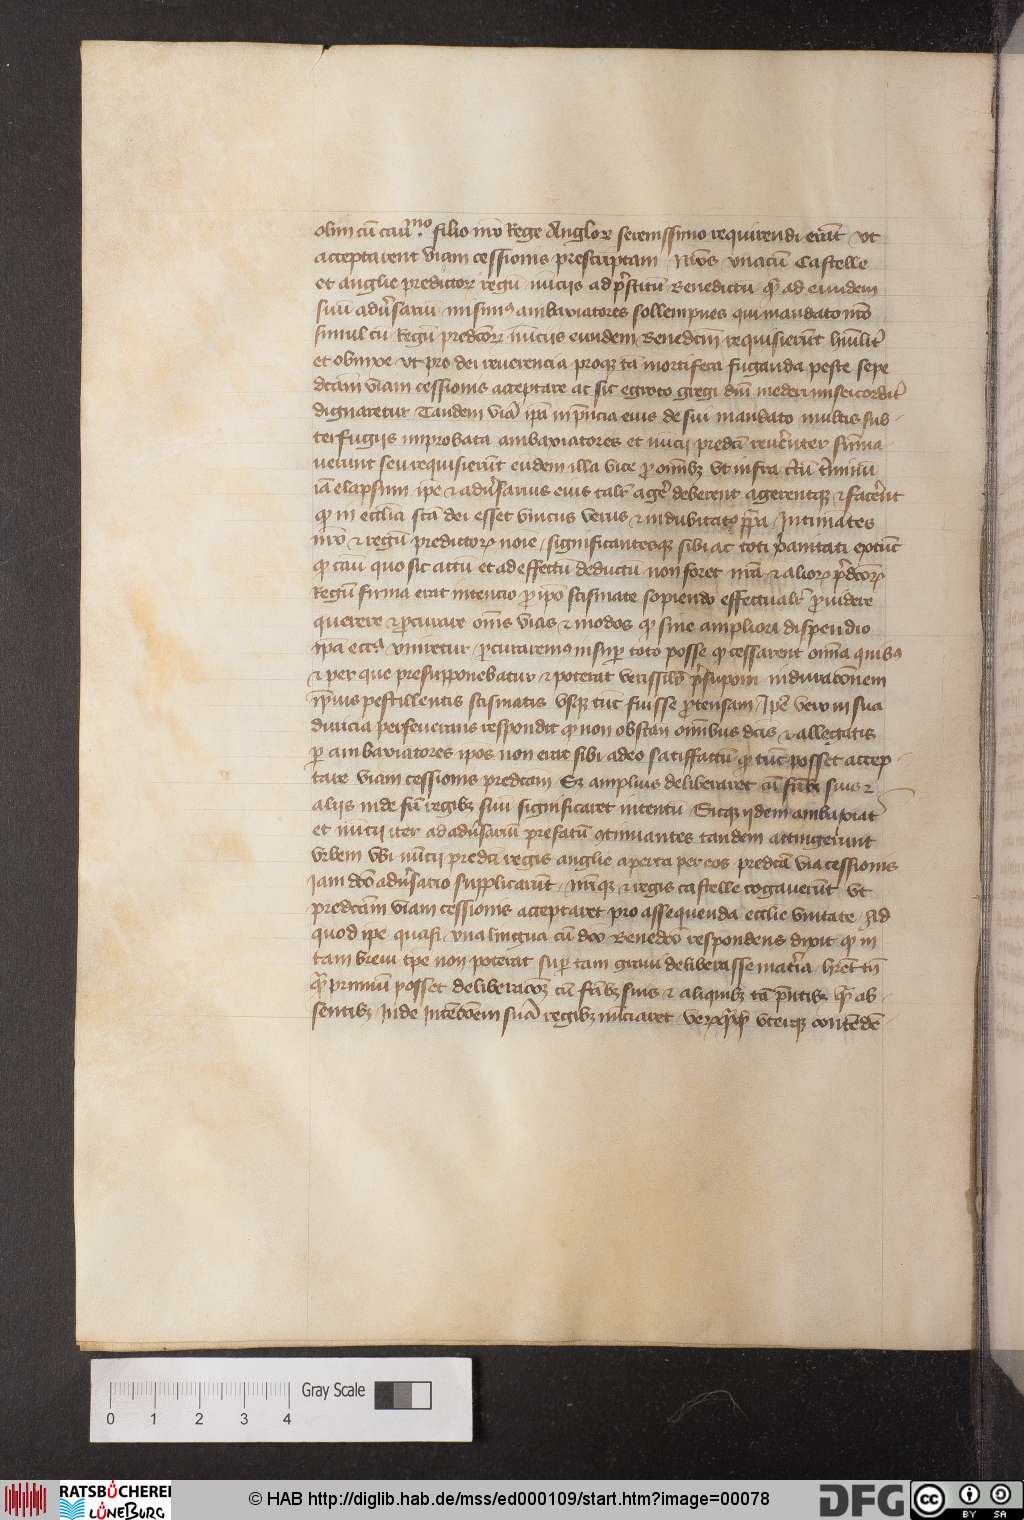 olim cu͞ cari͞mo filio nr͞o Rege Angloꝝ serenissimo requirendi era͞t vt
acceptarent viam cessionis prescriptam Nos vnacu͞ Castelle
et anglie predictoꝝ regu͞ nu͞ciis ad p͛fatu͞ Benedictu͞ qua͞ ad eundem
suu͞ adu͛sariu͞ misim᷒ ambaxiatores sollempnes qui mandato nr͞o
simul cu͞ Regu͞ predc͞oꝝ nu͞ciis eundem Benedc͞m requisieru͞t hu͞ilit͛
et obnixe vt pro dei reuerencia proqꝫ ta͞ mortifera fuganda peste sepe
dc͞am viam cessionis acceptare ac sic egroto gregi dn͞i mederi misericordit͛
dignaretur Tandem via͞ ip͞a in pn͞cia eius de sui mandato multis sub-
terfugijs improbata ambaxiatores et nu͞cij predc͞i reuerenter su͞ma
uerunt seu requisieru͞t eundem illa vice ꝓ om͞ibꝫ vt infra c͛tu͞ t͛minu͞
ia͞ elapsum ip͞e ⁊ adu͛sarius eius talr͞ ag͛e deberent agerentqꝫ ⁊ fac͛ent
ꝙ in eccl͞ia sc͞a dei esset vnicus verus ⁊ indubitat᷒ pp͞a Intimantes
nr͞o ⁊ regu͞ predictoꝝ no͞ie significantesqꝫ sibi ac toti xp͞ianitati extu͞c
ꝙ casu quo sic actu͞ et ad effectu͞ deductu͞ non foret nr͞a ⁊ alioꝝ p͛dc͞oꝝ
Regu͞ firma erat intencio ꝓ ip͞o scismate sopiendo effectualr͞ ꝓuidere
querere ⁊ ꝓcurare om͞s vias ⁊ modos ꝙ sine ampliori dispendio
ip͞a eccl͞ia vniretur ꝓcuraremꝰ insuꝑ toto posse ꝙ cessarent om͞ia quibꝰ
⁊ per que presupponebatur ⁊ poterat verissil͞r p͛supponi induracio͞nem
ip͞ius pestilentis scismatis vsqꝫ tu͞c fuisse ꝓtensam Ip͞e vero in sua
duricia perseuerans respondit ꝙ non obstan͞ om͞ibus dc͞is ⁊ allegatis
ꝑ ambaxiatores ip͞os non erat sibi adeo satisfactu͞ ꝙ tu͞c posset accep-
tare viam cessionis predc͞am Sꝫ amplius deliberaret cu͞ fr͞ibꝫ suis ⁊
aliis inde su͞ regibꝫ suu͞ significaret intentu͞ Sicqꝫ ijdem ambaxiat͛
et nu͞cij iter ad adu͛sariu͞ prefatu͞ ꝯtinuantes tandem attinger͞unt
vrbem vbi nu͞cij predc͞i regis anglie aperta per eos predc͞a via cessionis
Iam dc͞o adu͛sario supplicaru͞t nr͞iqꝫ ⁊ regis castelle rogaueru͞t vt
predc͞am viam cessionis acceptaret pro assequenda eccl͞ie vnitate Ad
quod ip͞e quasi vna lingua cu͞ dc͞o Benedc͞o respondens dixit ꝙ in
tam breui tp͞e non poterat suꝑ tam graui deliberasse mat͛ia hr͞et tn͞
qua͞ primu͞ posset deliberaco͞ꝫ cu͞ fr͞ibꝫ suis ⁊ aliquibꝫ ta͞ pn͞tibꝫ qua͞ ab-
sentibꝫ Inde Intenco͞em sua͞ regibꝫ nu͞ciaret vteꝛqꝫ contende͞
Gray Scale
0 1 2 3 4
RATSBÜCHEREI LÜNEBURG
© HAB http://diglib.hab.de/mss/ed000109/start.htm?image=00078
DFG
cc BY SA